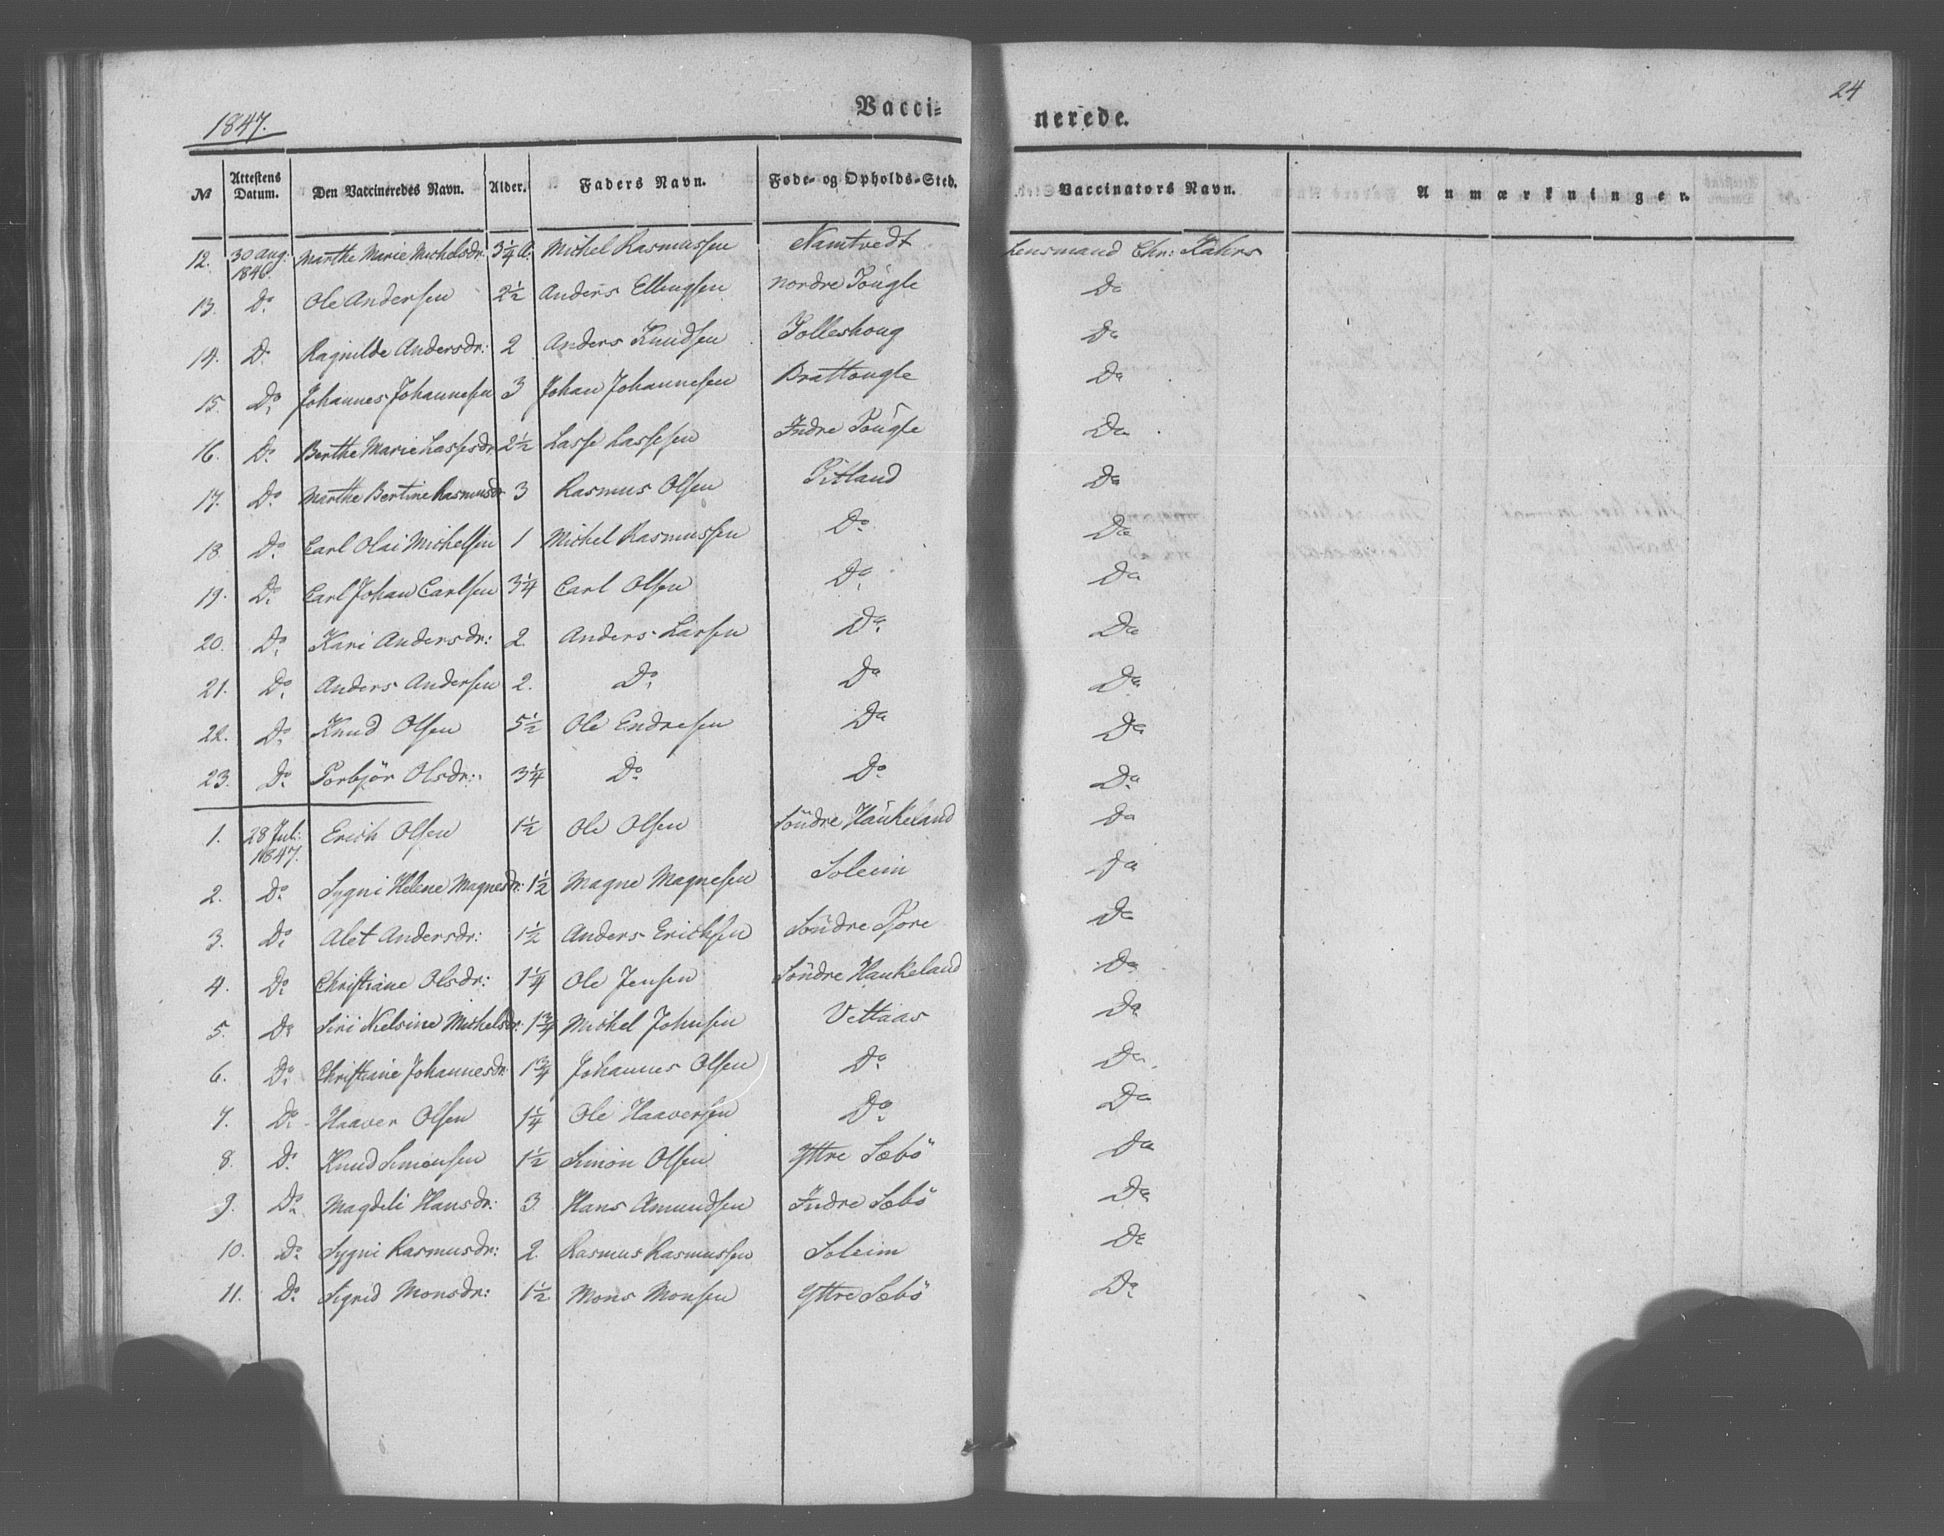 24
1847.
Vacci- nerede.
№ Attestens Datum. Den Vaccineredes Navn. Alder. Faders Navn. Føde- og Opholds-Sted. Vaccinators Navn. Anmærkninger.
12. 30 Aug: 1846. Marthe Marie Michelsdr. 3¼ A. Michel Rasmussen Namtvedt Lensmand Chr: Kahrs
13. Do Ole Andersen 2½ Anders Ellingsen nordre Do
14. Do Ragnilde Andersdr: 2 Anders Knudsen Do
15. Do Johannes Johannesen 3 Johan Johannesen Do
16. Do Berthe Marie Lassesdr 2½ Lasse Lassesen Indre Do
17. Do Marthe Bertine Rasmusdr 3 Rasmus Olsen Do
18. Do Carl Olai Michelsen 1 Michel Rasmussen Do Do
19. Do Carl Johan Carlsen 3¼ Carl Olsen Do Do
20. Do Kari Andersdr: 2. Anders Larsen Do Do
21. Do Anders Andersen 2. Do Do Do
22. Do Knud Olsen 5½ Ole Endresen Do Do
23. Do Torbjør Olsdr: 3¼ Do Do Do
1. 28 Jul: 1847. Erich Olsen 1½ Ole Olsen Söndre Haukeland Do
2. Do Sygni Helene Magnesdr: 1½ Magne Magnesen Soleim Do
3. Do Alet Andersdr: 1½ Anders Erichsen Söndre Do
4. Do Christiane Olsdr: 1¼ Ole Jensen Söndre Haukeland Do
5. Do Siri Nielsine Michelsdr: 1¾ Michel Johnsen Vettaas Do
6. Do Christiane Johannesdr. 1¾ Johannes Olsen Do Do
7. Do Haaver Olsen 1¼ Ole Haaversen Do Do
8. Do Knud Simonsen 1½ Simon Olsen Yttre Sæbö Do
9. Do Magdeli Hansdr: 3. Hans Amundsen Indre Sæbö Do
10. Do Sygni Rasmusdr: 2. Rasmus Rasmussen Soleim Do
11. Do Sigrid Monsdr: 1½ Mons Monsen Yttre Sæbö Do